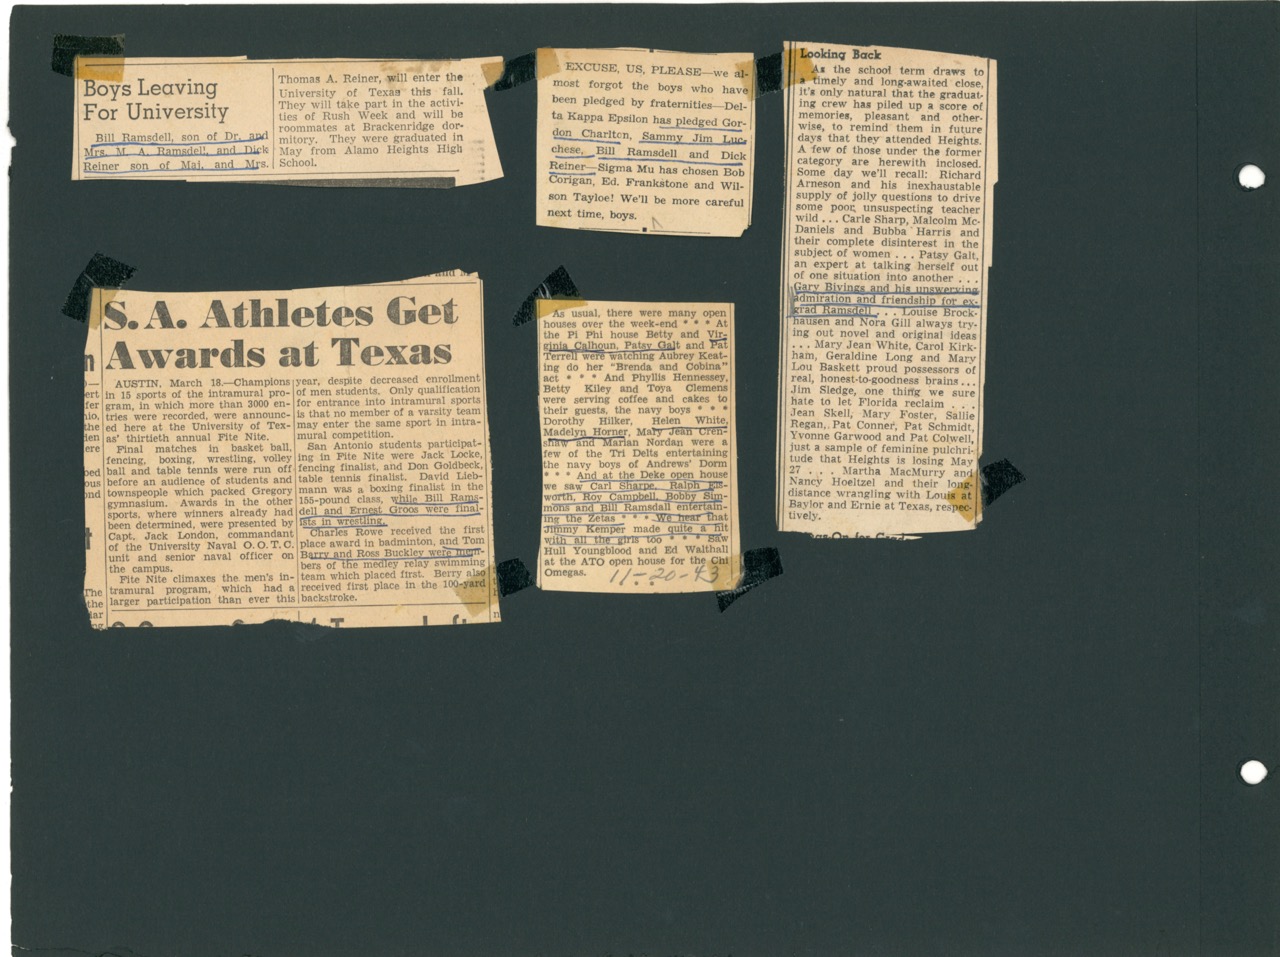 Boys Leaving
For University
Bill Ramsdell, son of Dr. and
Mrs. M. A. Ramsdell, and Dick
Reiner son of Maj. and Mrs.
Thomas A. Reiner, will enter the
University of Texas this fall.
They will take part in the activi-
ties of Rush Week and will be
roommates at Brackenridge dor-
mitory. They were graduated in
May from Alamo Heights High
School.
EXCUSE, US, PLEASE—we al-
most forgot the boys who have
been pledged by fraternities—Del-
ta Kappa Epsilon has pledged Gor-
don Charlton, Sammy Jim Luc-
chese, Bill Ramsdell and Dick
Reiner—Sigma Mu has chosen Bob
Corigan, Ed. Frankstone and Wil-
son Tayloe! We'll be more careful
next time, boys.
Looking Back
As the school term draws to
a timely and long-awaited close,
it's only natural that the graduat-
ing crew has piled up a score of
memories, pleasant and other-
wise, to remind them in future
days that they attended Heights.
A few of those under the former
category are herewith inclosed.
Some day we'll recall: Richard
Arneson and his inexhaustable
supply of jolly questions to drive
some poor, unsuspecting teacher
wild . . . Carle Sharp, Malcolm Mc-
Daniels and Bubba Harris and
their complete disinterest in the
subject of women . . . Patsy Galt,
an expert at talking herself out
of one situation into another . . .
Gary Bivings and his unswerving
admiration and friendship for ex-
grad Ramsdell . . . Louise Brock-
hausen and Nora Gill always try-
ing out novel and original ideas
. . . Mary Jean White, Carol Kirk-
ham, Geraldine Long and Mary
Lou Baskett proud possessors of
real, honest-to-goodness brains . . .
Jim Sledge, one thing we sure
hate to let Florida reclaim . . .
Jean Skell, Mary Foster, Sallie
Regan, Pat Conner, Pat Schmidt,
Yvonne Garwood and Pat Colwell,
just a sample of feminine pulchri-
tude that Heights is losing May
27 . . . Martha MacMurry and
Nancy Hoeltzel and their long-
distance wrangling with Louis at
Baylor and Ernie at Texas, respec-
tively.
S. A. Athletes Get
Awards at Texas
AUSTIN, March 18.—Champions
in 15 sports of the intramural pro-
gram, in which more than 3000 en-
tries were recorded, were announc-
ed here at the University of Tex-
as' thirtieth annual Fite Nite.
Final matches in basket ball,
fencing, boxing, wrestling, volley
ball and table tennis were run off
before an audience of students and
townspeople which packed Gregory
gymnasium. Awards in the other
sports, where winners already had
been determined, were presented by
Capt. Jack London, commandant
of the University Naval O.O.T.C.
unit and senior naval officer on
the campus.
Fite Nite climaxes the men's in-
tramural program, which had a
larger participation than ever this
year, despite decreased enrollment
of men students. Only qualification
for entrance into intramural sports
is that no member of a varsity team
may enter the same sport in intra-
mural competition.
San Antonio students participat-
ing in Fite Nite were Jack Locke,
fencing finalist, and Don Goldbeck,
table tennis finalist. David Lieb-
mann was a boxing finalist in the
155-pound class, while Bill Rams-
dell and Ernest Groos were final-
ists in wrestling.
Charles Rowe received the first
place award in badminton, and Tom
Barry and Ross Buckley were mem-
bers of the medley relay swimming
team which placed first. Berry also
received first place in the 100-yard
backstroke.
As usual, there were many open
houses over the week-end * * * At
the Pi Phi house Betty and Vir-
ginia Calhoun, Patsy Galt and Pat
Terrell were watching Aubrey Keat-
ing do her "Brenda and Cobina"
act * * * And Phyllis Hennessey,
Betty Kiley and Toya Clemens
were serving coffee and cakes to
their guests, the navy boys * * *
Dorothy Hilker, Helen White,
Madelyn Horner, Mary Jean Cren-
shaw and Marian Nordan were a
few of the Tri Delts entertaining
the navy boys of Andrews' Dorm
* * * And at the Deke open house
we saw Carl Sharpe, Ralph Els-
worth, Roy Campbell, Bobby Sim-
mons and Bill Ramsdall entertain-
ing the Zetas * * * We hear that
Jimmy Kemper made quite a hit
with all the girls too * * * Saw
Hull Youngblood and Ed Walthall
at the ATO open house for the Chi
Omegas.
11-20-43